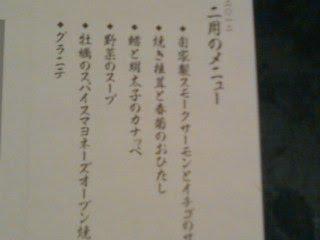 二〇一二
二月のメニュー
◆ 自家製スモークサーモンとイチゴのサ
◆ 焼き椎茸と春菊のおひたし
◆ 鱈と明太子のカナッペ
◆ 野菜のスープ
◆ 牡蠣のスパイスマヨネーズオーブン焼
◆ グラニテ